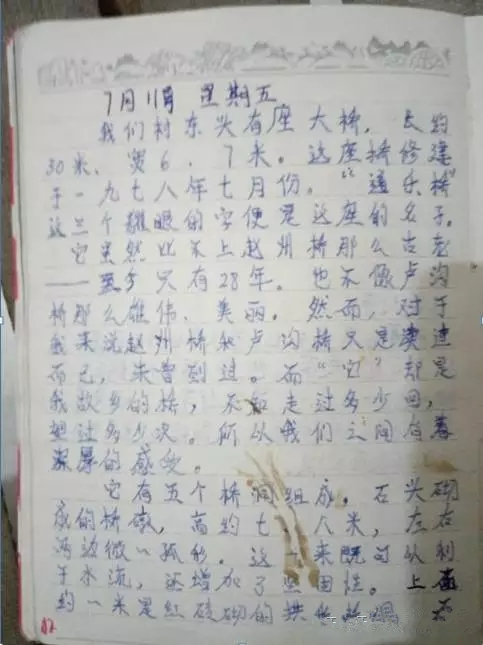 7月11日 星期五
我们村东头有座大桥，长约
30米，宽6、7米。这座桥修建
于一九七八年七月份。“通乐桥”
这三个耀眼的字便是这座的名子。
它虽然比不上赵州桥那么古老
——至多只有28年。也不像卢沟
桥那么雄伟、美丽。然而，对于
我来说赵州桥和卢沟桥只是读过
而已，未曾到过。而“它”却是
我故乡的桥，不知走过多少回，
过多少次。所以我们之间有着
深厚的感受。
它有五个桥洞组成。石头砌
成的桥礅，高约七、八米，左右
两边微一孤形。这一来既可以利
于水流，还增加了坚固性。上面
约一米是红砖砌的拱形
82